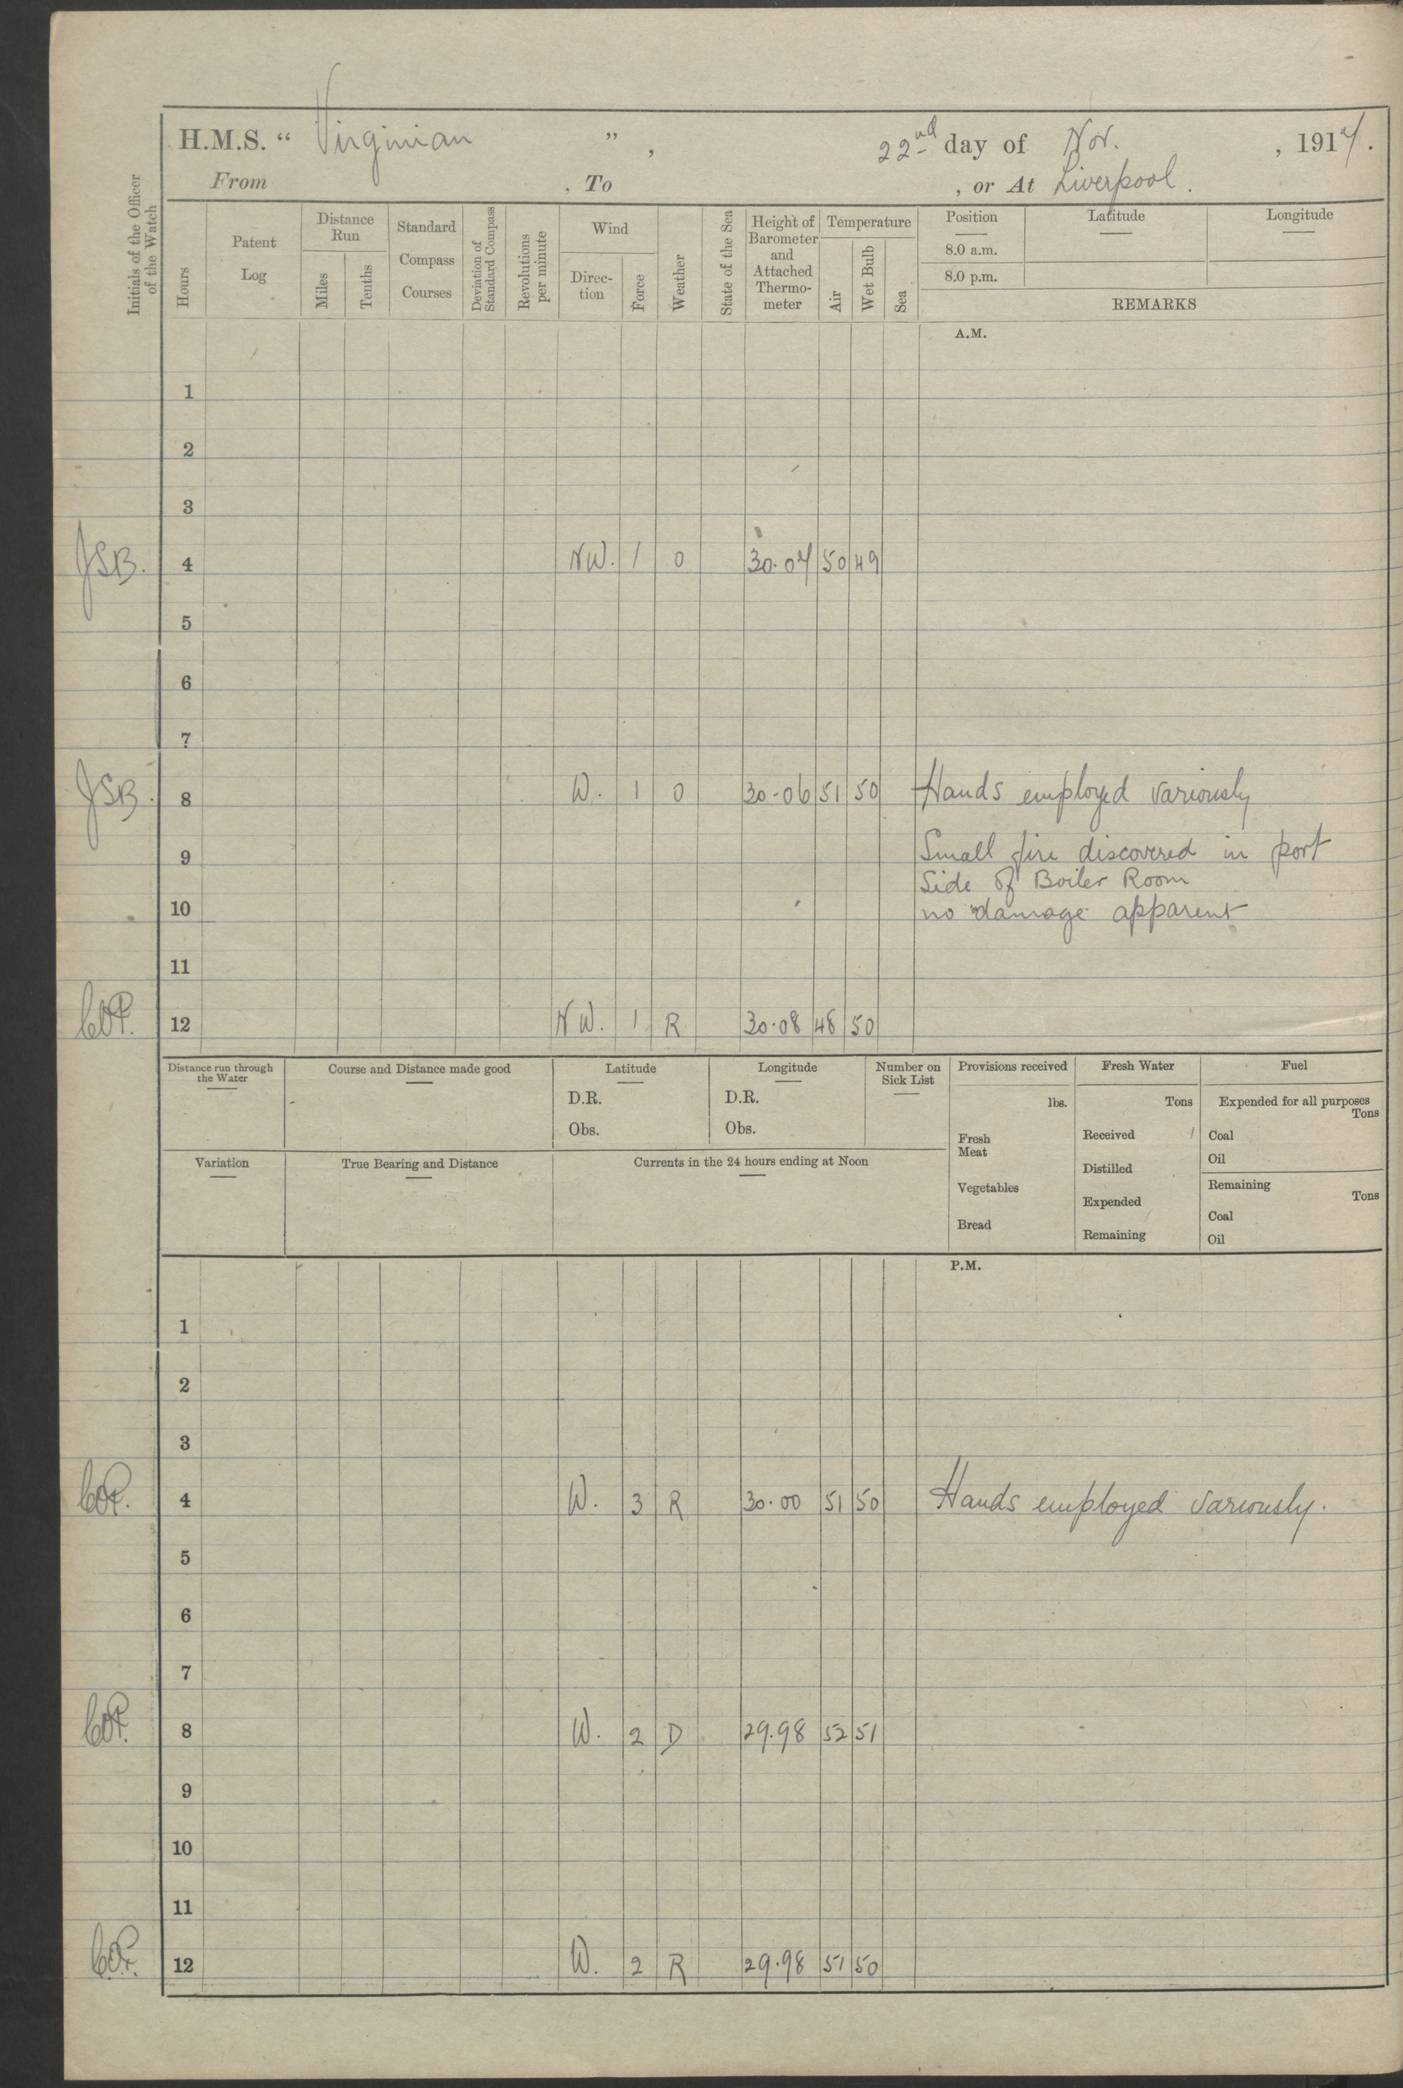 H.M.S. “ Virginian ” , 22nd day of Nov. , 1917.
From , To , or At Liverpool.
Initials of the Officer of the Watch
Hours
Patent Log
Distance Run
Miles
Tenths
Standard Compass Courses
Deviation of Standard Compass
Revolutions per minute
Wind
Direc-tion
Force
Weather
State of the Sea
Height of Barometer and Attached Thermo-meter
Temperature
Air
Wet Bulb
Sea
Position Latitude Longitude
8.0 a.m.
8.0 p.m.
REMARKS
A.M.
1
2
3
JSB. 4 NW. 1 O 30.07 50 49
5
6
7
JSB. 8 W. 1 O 30.06 51 50 Hands employed variously
9 Small fire discovered in port
Side of Boiler Room
10 no damage apparent
11
12 NW. 1 R 30.08 48 50
Distance run through the Water
Course and Distance made good
Latitude
D.R.
Obs.
Longitude
D.R.
Obs.
Number on Sick List
Provisions received
lbs.
Fresh Meat
Vegetables
Bread
Fresh Water
Tons
Received
Distilled
Expended
Remaining
Fuel
Expended for all purposes
Tons
Coal
Oil
Remaining
Tons
Coal
Oil
Variation
True Bearing and Distance
Currents in the 24 hours ending at Noon
P.M.
1
2
3
4 W. 3 R 30.00 51 50 Hands employed variously.
5
6
7
8 W. 2 D 29.98 52 51
9
10
11
12 W. 2 R 29.98 51 50